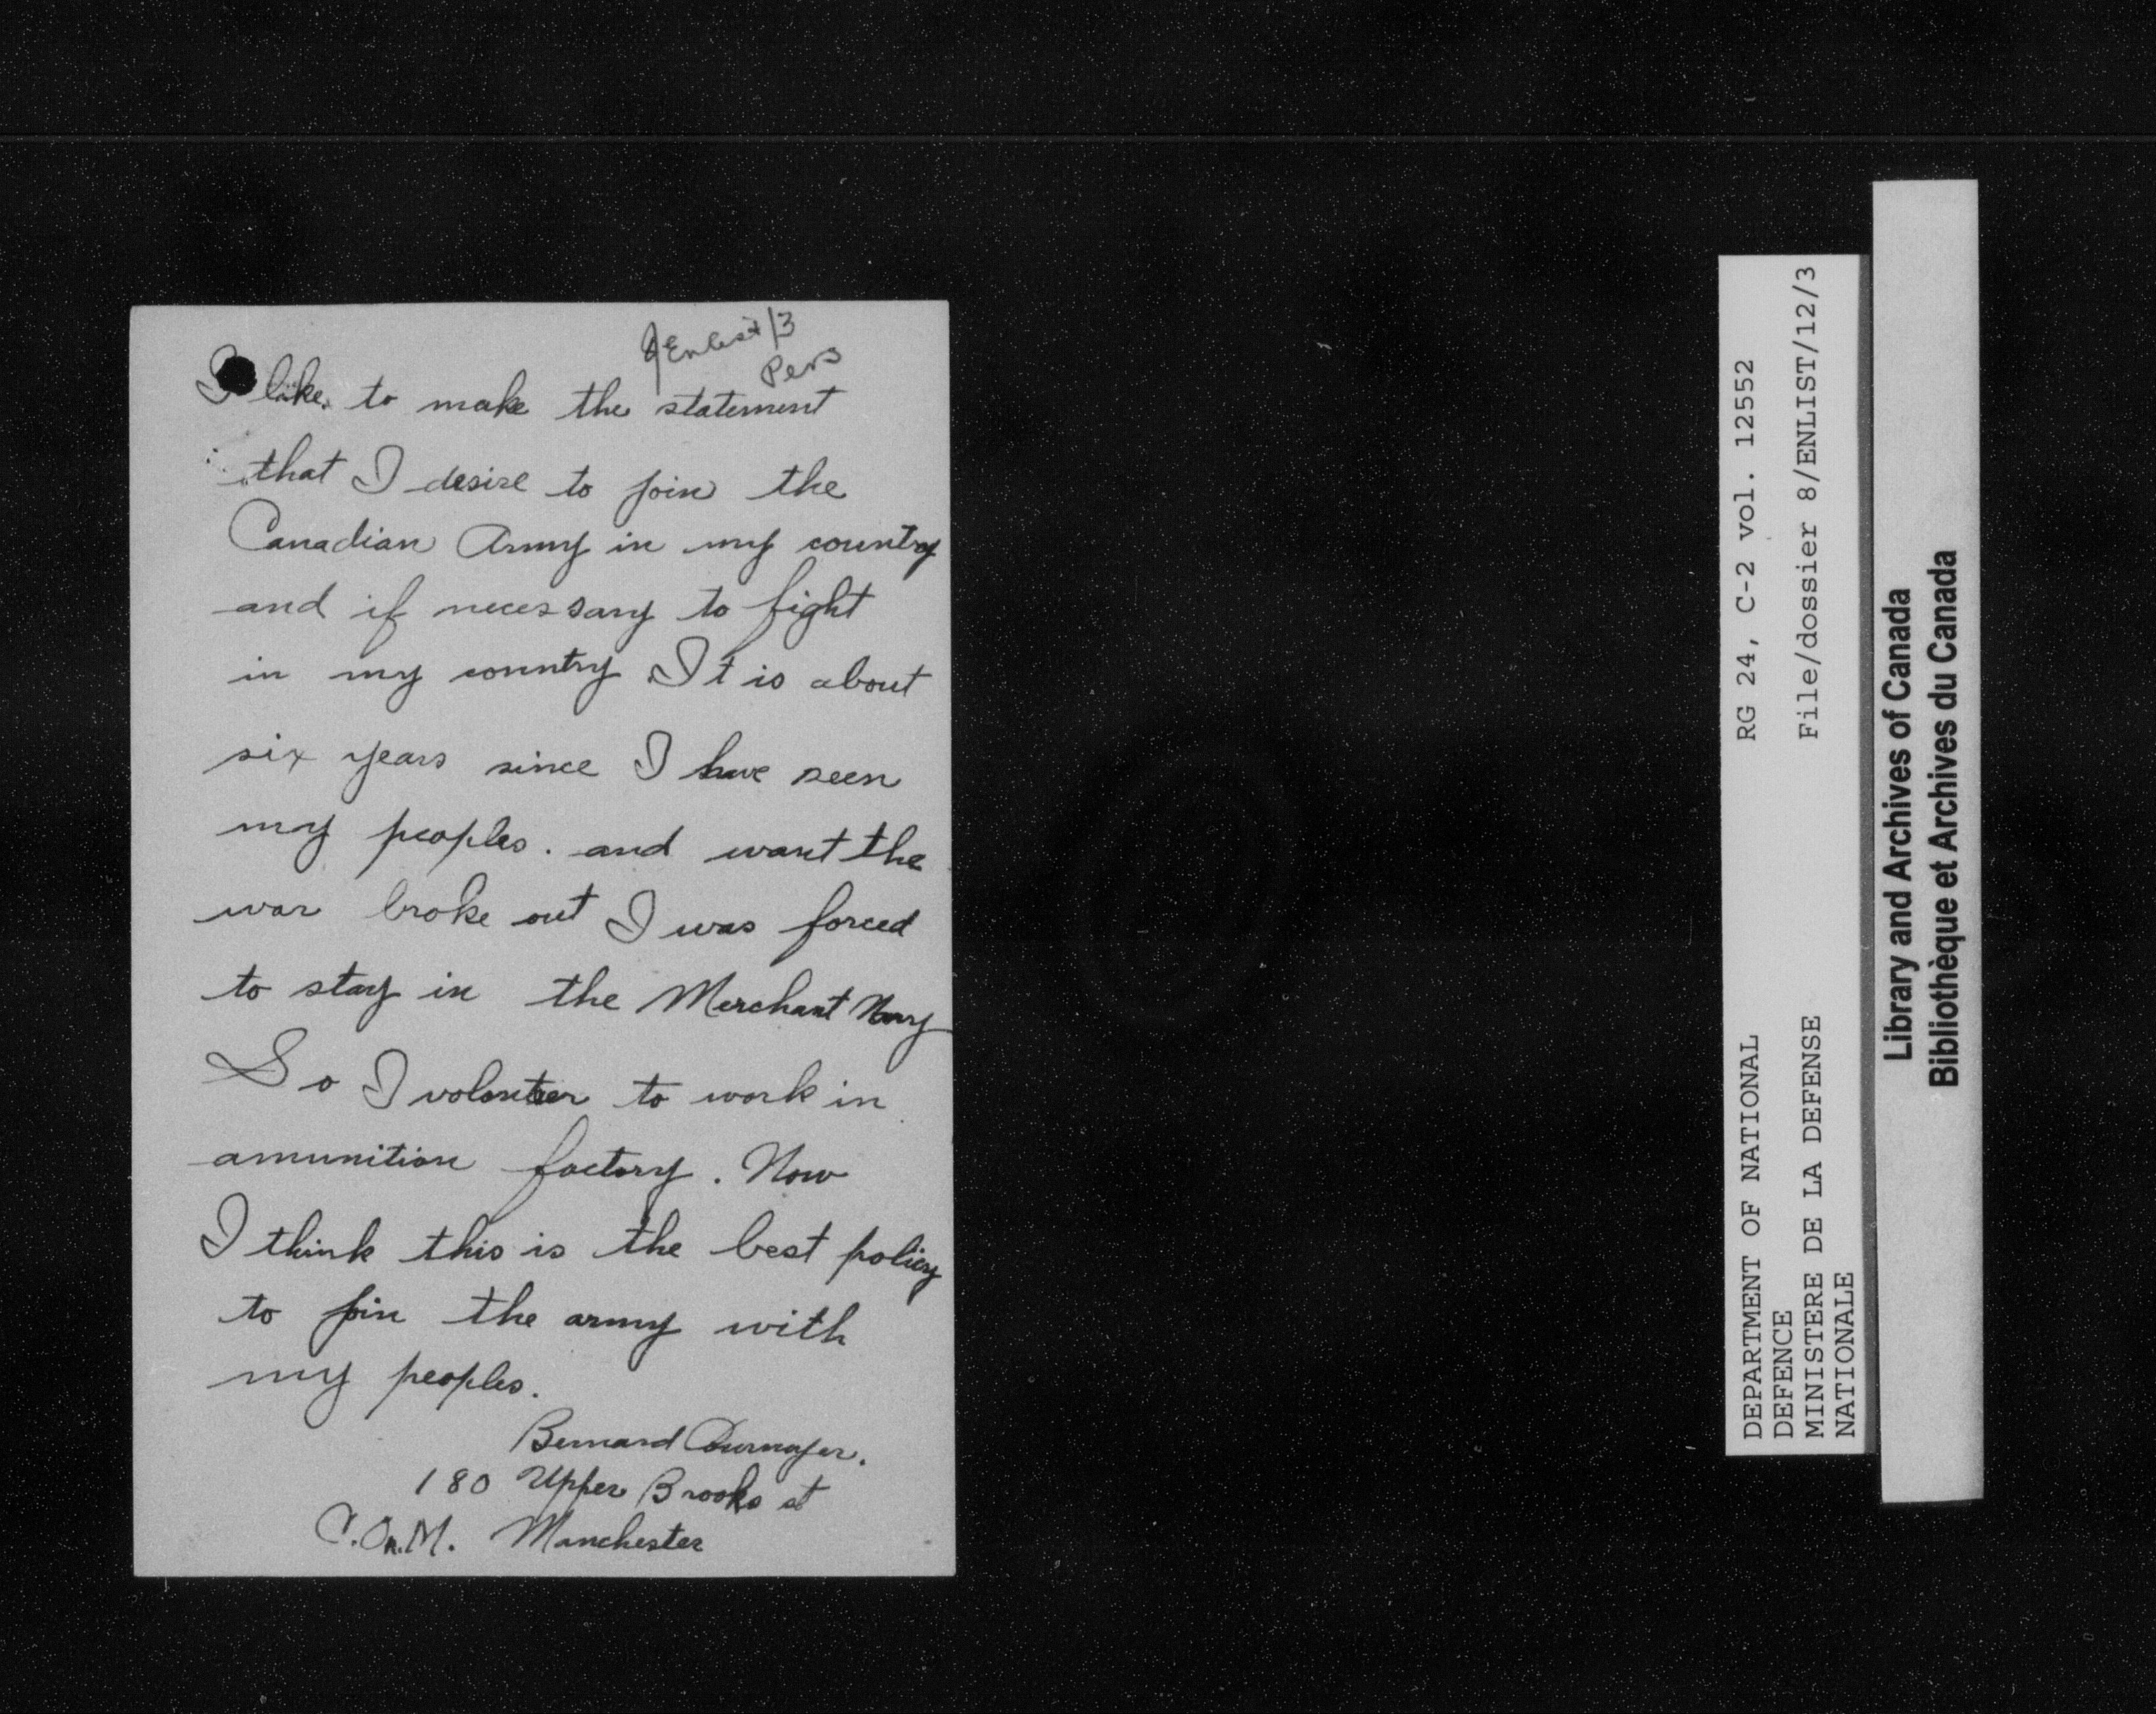 8/Enlist/3
Pers
I like to make the statement
that I desire to join the
Canadian Army in my country
and if necessary to fight
in my country It is about
six years since I have seen
my peoples. and want the
war broke out I was forced
to stay in the Merchant Navy
So I volunteer to work in
amunition factory. Now
I think this is the best policy
to join the army with
my peoples.
Bernard
180 Upper Brooks st
Manchester
RG 24, C-2 vol. 12552
File/dossier 8/ENLIST/12/3
DEPARTMENT OF NATIONAL
DEFENCE
MINISTERE DE LA DEFENSE
NATIONALE
Library and Archives of Canada
Bibliothèque et Archives du Canada